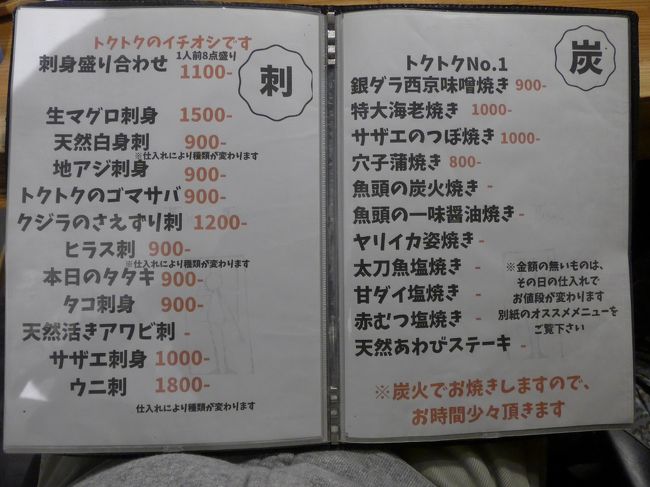 トクトクのイチオシです
1人前8点盛り
刺身盛り合わせ 1100-
刺
生マグロ刺身 1500-
天然白身刺 900-
※仕入れにより種類が変わります
地アジ刺身 900-
トクトクのゴマサバ 900-
クジラのさえずり刺 1200-
ヒラス刺 900-
※仕入れにより種類が変わります
本日のタタキ 900-
タコ刺身 900-
天然活きアワビ刺 -
サザエ刺身 1000-
ウニ刺 1800-
仕入れにより種類が変わります
炭
トクトクNo.1
銀ダラ西京味噌焼き 900-
特大海老焼き 1000-
サザエのつぼ焼き 1000-
穴子蒲焼き 800-
魚頭の炭火焼き -
魚頭の一味醤油焼き -
ヤリイカ姿焼き -
太刀魚塩焼き -
甘ダイ塩焼き -
赤むつ塩焼き -
天然あわびステーキ -
※金額の無いものは、
その日の仕入れで
お値段が変わります
別紙のオススメメニューを
ご覧下さい
※炭火でお焼きしますので、
お時間少々頂きます